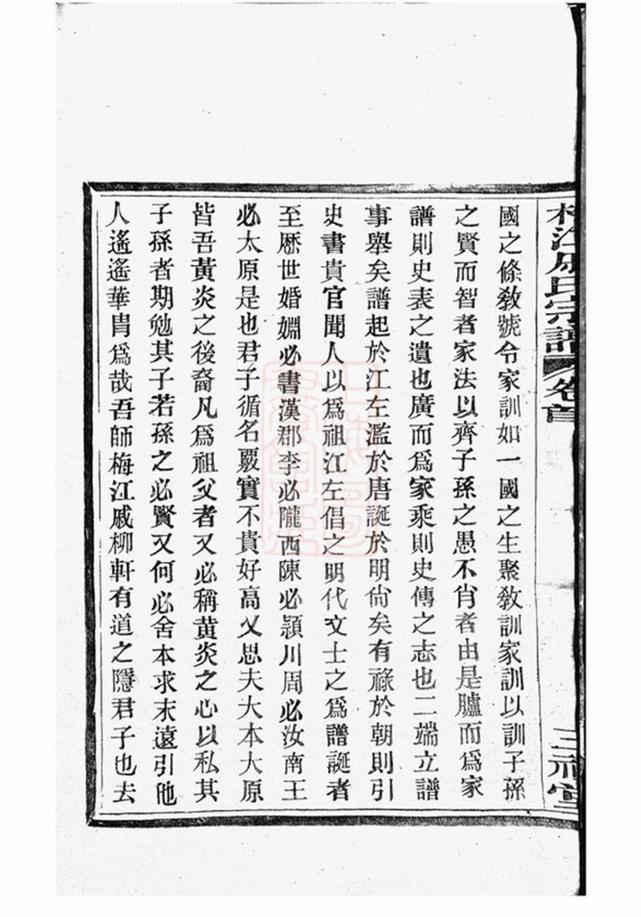 梅江戚氏宗譜 卷首 三禮堂
國之條敎號令家訓如一國之生聚敎訓家訓以訓子孫
之賢而智者家法以齊子孫之愚不肖者由是臚而爲家
譜則史表之遺也廣而爲家乘則史傳之志也二端立譜
事舉矣譜起於江左濫於唐誕於明尙矣有祿於朝則引
史書貴官聞人以爲祖江左倡之明代文士之爲譜誕者
至厯世婚婣必書漢郡李必隴西陳必潁川周必汝南王
必太原是也君子循名覈實不貴好高又思夫大本大原
皆吾黃炎之後裔凡爲祖父者又必稱黃炎之心以私其
子孫者期勉其子若孫之必賢又何必舍本求末遠引他
人遙遙華胄爲哉吾師梅江戚柳軒有道之隱君子也去